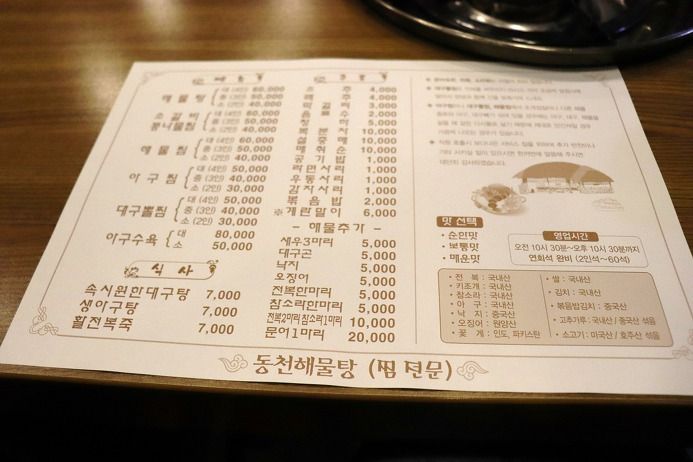 메뉴
해물탕
대 (4인) 60,000
중 (3인) 50,000
소 (2인) 40,000
소갈비
콩나물찜
대 (4인) 60,000
중 (3인) 50,000
소 (2인) 40,000
해물찜
대 (4인) 60,000
중 (3인) 50,000
소 (2인) 40,000
아구찜
대 (4인) 50,000
중 (3인) 40,000
소 (2인) 30,000
대구뽈찜
대 (4인) 50,000
중 (3인) 40,000
소 (2인) 30,000
아구수육
대 80,000
소 50,000
식사
속시원한대구탕 7,000
생아구탕 7,000
활전복죽 7,000
소주 4,000
맥주 4,000
막걸리 3,000
음료수 2,000
청하 5,000
복분자 10,000
설중매 10,000
매취순 10,000
공기밥 1,000
라면사리 1,000
우동사리 1,000
감자사리 1,000
볶음밥 2,000
※계란말이 6,000
해물추가
새우3마리 5,000
대구곤 5,000
낙지 5,000
오징어 5,000
전복한마리 5,000
참소라한마리 5,000
전복2마리 참소라1마리 10,000
문어1마리 20,000
맛 선택
• 순한맛
• 보통맛
• 매운맛
영업시간
오전 10시 30분~오후 10시 30분까지
연회석 완비 (2인석~60석)
• 전복 : 국내산
• 키조개 : 국내산
• 참소라 : 국내산
• 아구 : 국내산
• 낙지 : 중국산
• 오징어 : 원양산
• 꽃게 : 인도, 파키스탄
• 쌀 : 국내산
• 김치 : 국내산
• 볶음밥김치 : 중국산
• 고추가루 : 국내산 / 중국산 섞음
• 소고기 : 미국산 / 호주산 섞음
동천해물탕 (찜 전문)